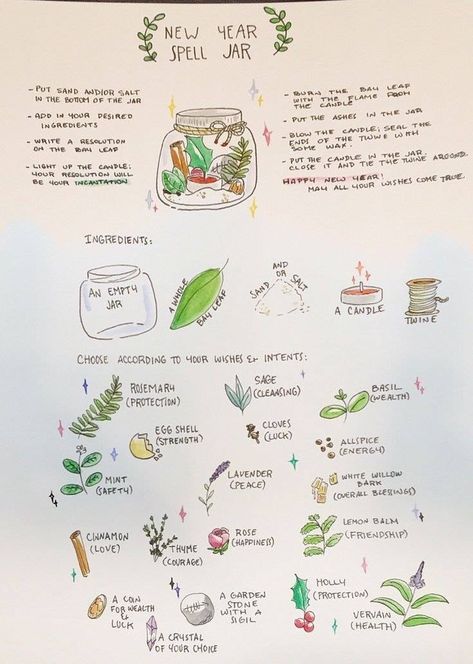 NEW YEAR
SPELL JAR
- PUT SAND AND/OR SALT
IN THE BOTTOM OF THE JAR
- ADD IN YOUR DESIRED
INGREDIENTS
- WRITE A RESOLUTION
ON THE BAY LEAF
- LIGHT UP THE CANDLE;
YOUR RESOLUTION WILL
BE YOUR INCANTATION
- BURN THE BAY LEAF
WITH THE FLAME FROM
THE CANDLE
- PUT THE ASHES IN THE JAR
- BLOW THE CANDLE; SEAL THE
ENDS OF THE TWINE WITH
SOME WAX.
- PUT THE CANDLE IN THE JAR,
CLOSE IT AND TIE THE TWINE AROUND.
HAPPY NEW YEAR!
MAY ALL YOUR WISHES COME TRUE.
INGREDIENTS:
AN EMPTY
JAR
A WHOLE
BAY LEAF
SAND
AND
OR
SALT
A CANDLE
TWINE
CHOOSE ACCORDING TO YOUR WISHES & INTENTS:
ROSEMARY
(PROTECTION)
SAGE
(CLEANSING)
BASIL
(WEALTH)
EGG SHELL
(STRENGTH)
CLOVES
(LUCK)
ALLSPICE
(ENERGY)
MINT
(SAFETY)
LAVENDER
(PEACE)
WHITE WILLOW
BARK
(OVERALL BLESSINGS)
CINNAMON
(LOVE)
THYME
(COURAGE)
ROSE
(HAPPINESS)
LEMON BALM
(FRIENDSHIP)
A COIN
FOR WEALTH
&
LUCK
A CRYSTAL
OF YOUR CHOICE
A GARDEN
STONE
WITH A
SIGIL
HOLLY
(PROTECTION)
VERVAIN
(HEALTH)